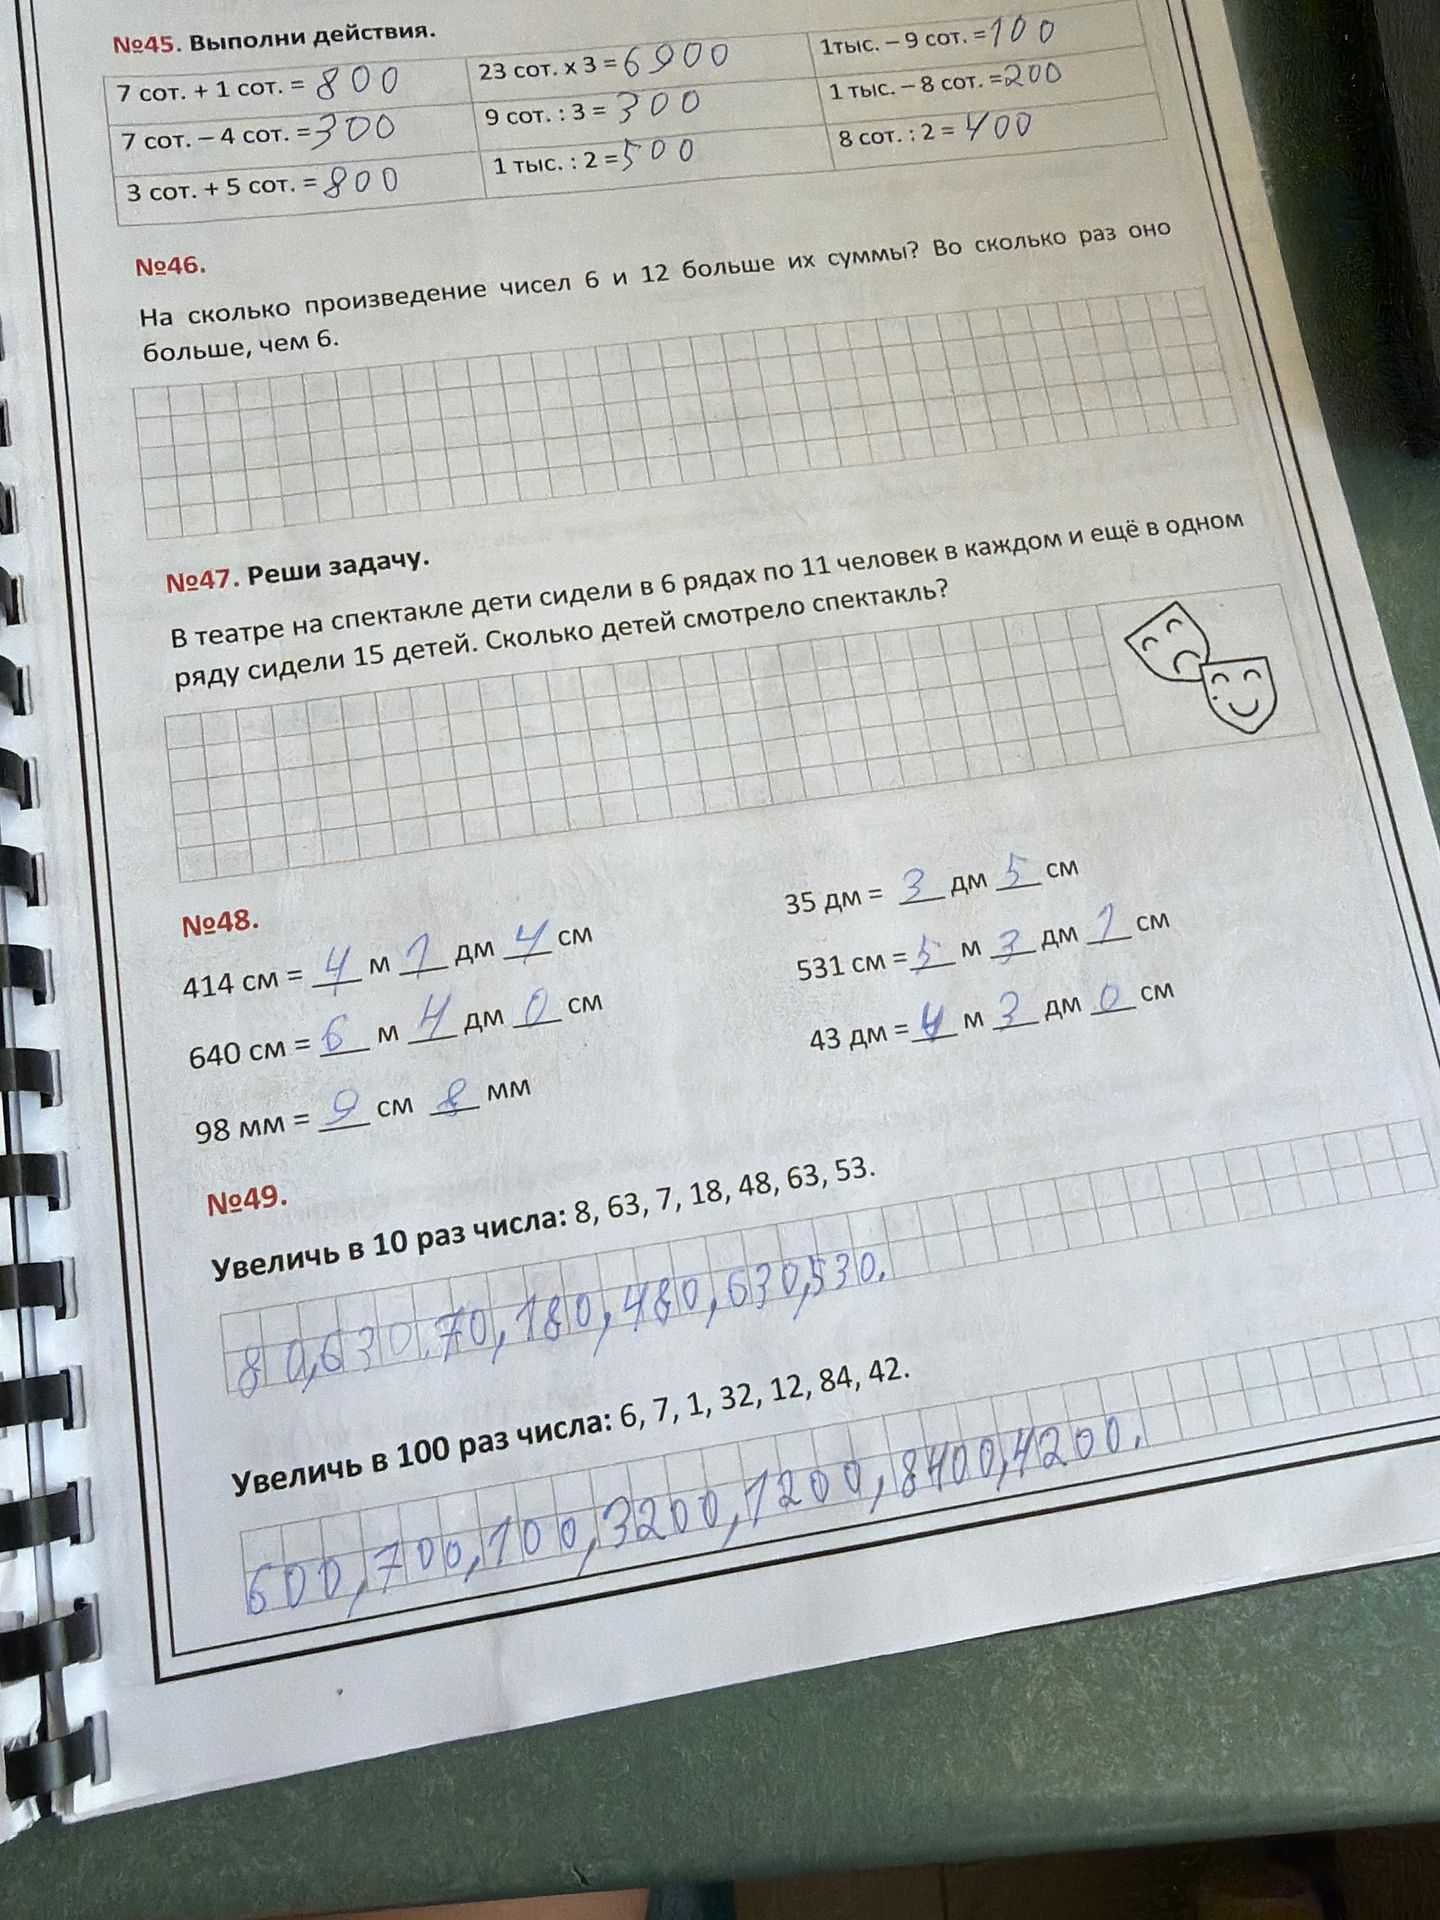 №45. Выполни действия.
7 сот. + 1 сот. = 800
23 сот. х 3 = 6900
1тыс. – 9 сот. = 100
7 сот. – 4 сот. = 300
9 сот. : 3 = 300
1 тыс. – 8 сот. = 200
3 сот. + 5 сот. = 800
1 тыс. : 2 = 500
8 сот. : 2 = 400
№46.
На сколько произведение чисел 6 и 12 больше их суммы? Во сколько раз оно
больше, чем 6.
№47. Реши задачу.
В театре на спектакле дети сидели в 6 рядах по 11 человек в каждом и ещё в одном
ряду сидели 15 детей. Сколько детей смотрело спектакль?
№48.
414 см = 4 м 1 дм 4 см
35 дм = 3 дм 5 см
640 см = 6 м 4 дм 0 см
531 см = 5 м 3 дм 1 см
98 мм = 9 см 8 мм
43 дм = 4 м 3 дм 0 см
№49.
Увеличь в 10 раз числа: 8, 63, 7, 18, 48, 63, 53.
80, 630, 70, 180, 480, 630, 530.
Увеличь в 100 раз числа: 6, 7, 1, 32, 12, 84, 42.
600, 700, 100, 3200, 1200, 8400, 4200.